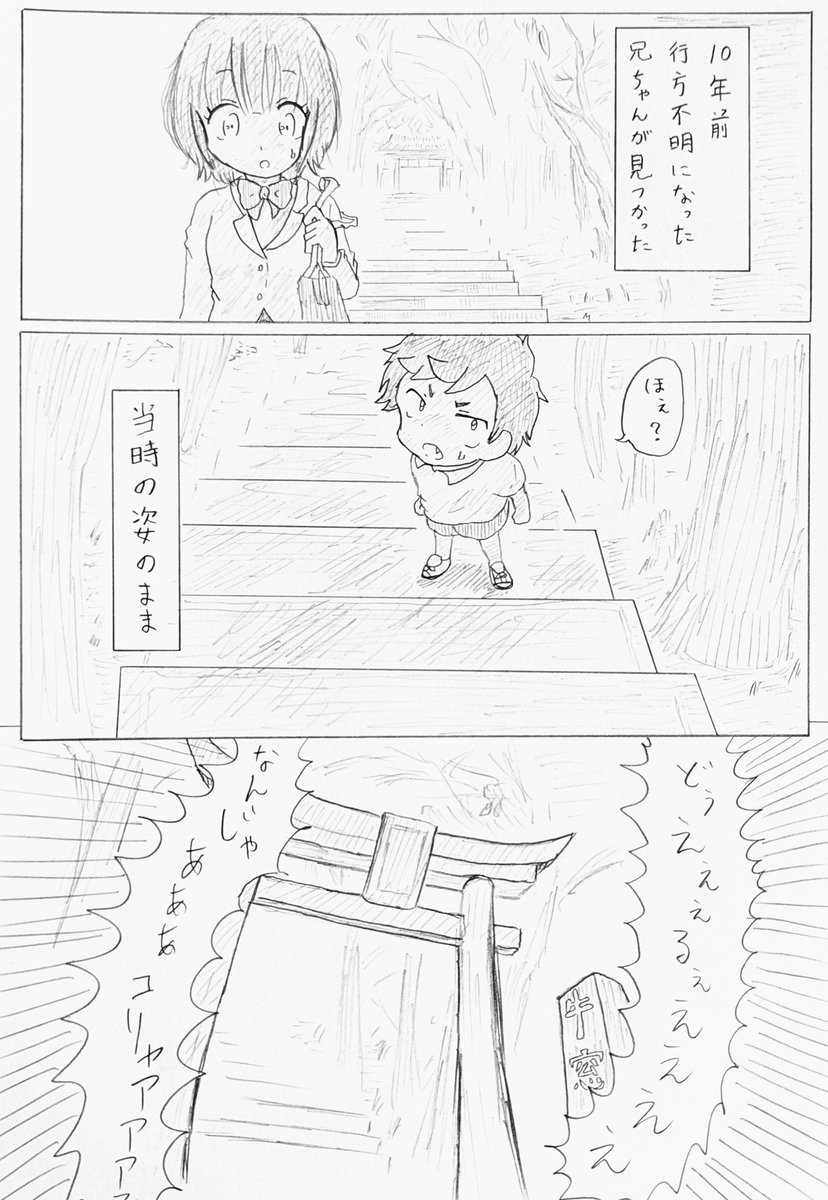 10年前
行方不明になった
兄ちゃんが見つかった
ほぇ?
当時の姿のまま
どぅえぇぇるぇえええぇ
牛窓
なんじゃ
あああ
コリャアアアア